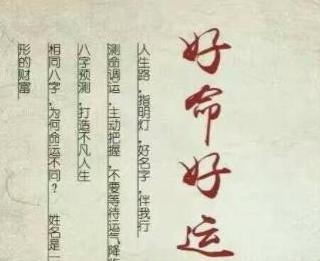 好命好运
人生路，指明灯，好名字，伴我行
测命调运，主动把握，不要等待运气降临
八字预测，打造不凡人生
相同八字，为何命运不同？ 姓名是一
形的财富